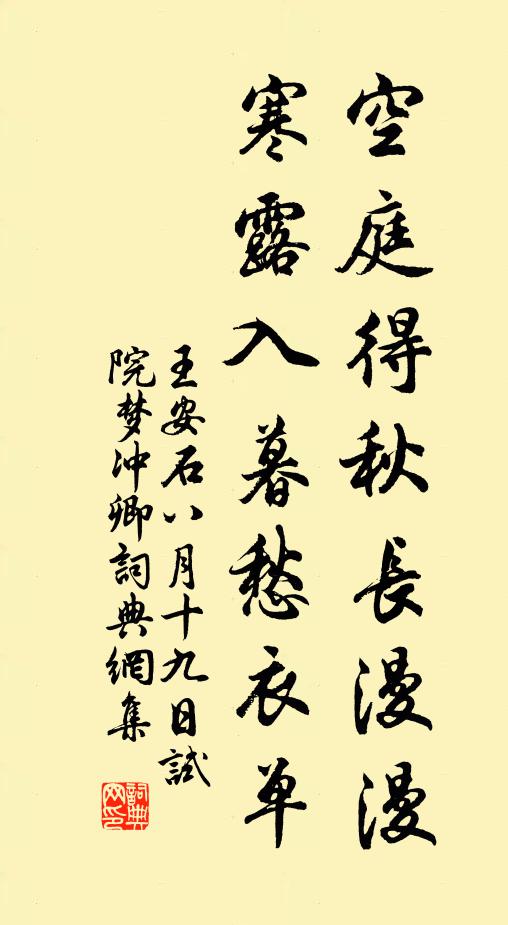 空庭得秋長漫漫
寒露入暮愁衣单
王安石八月十九日試
院梦冲卿詞典網集
詞典
网印